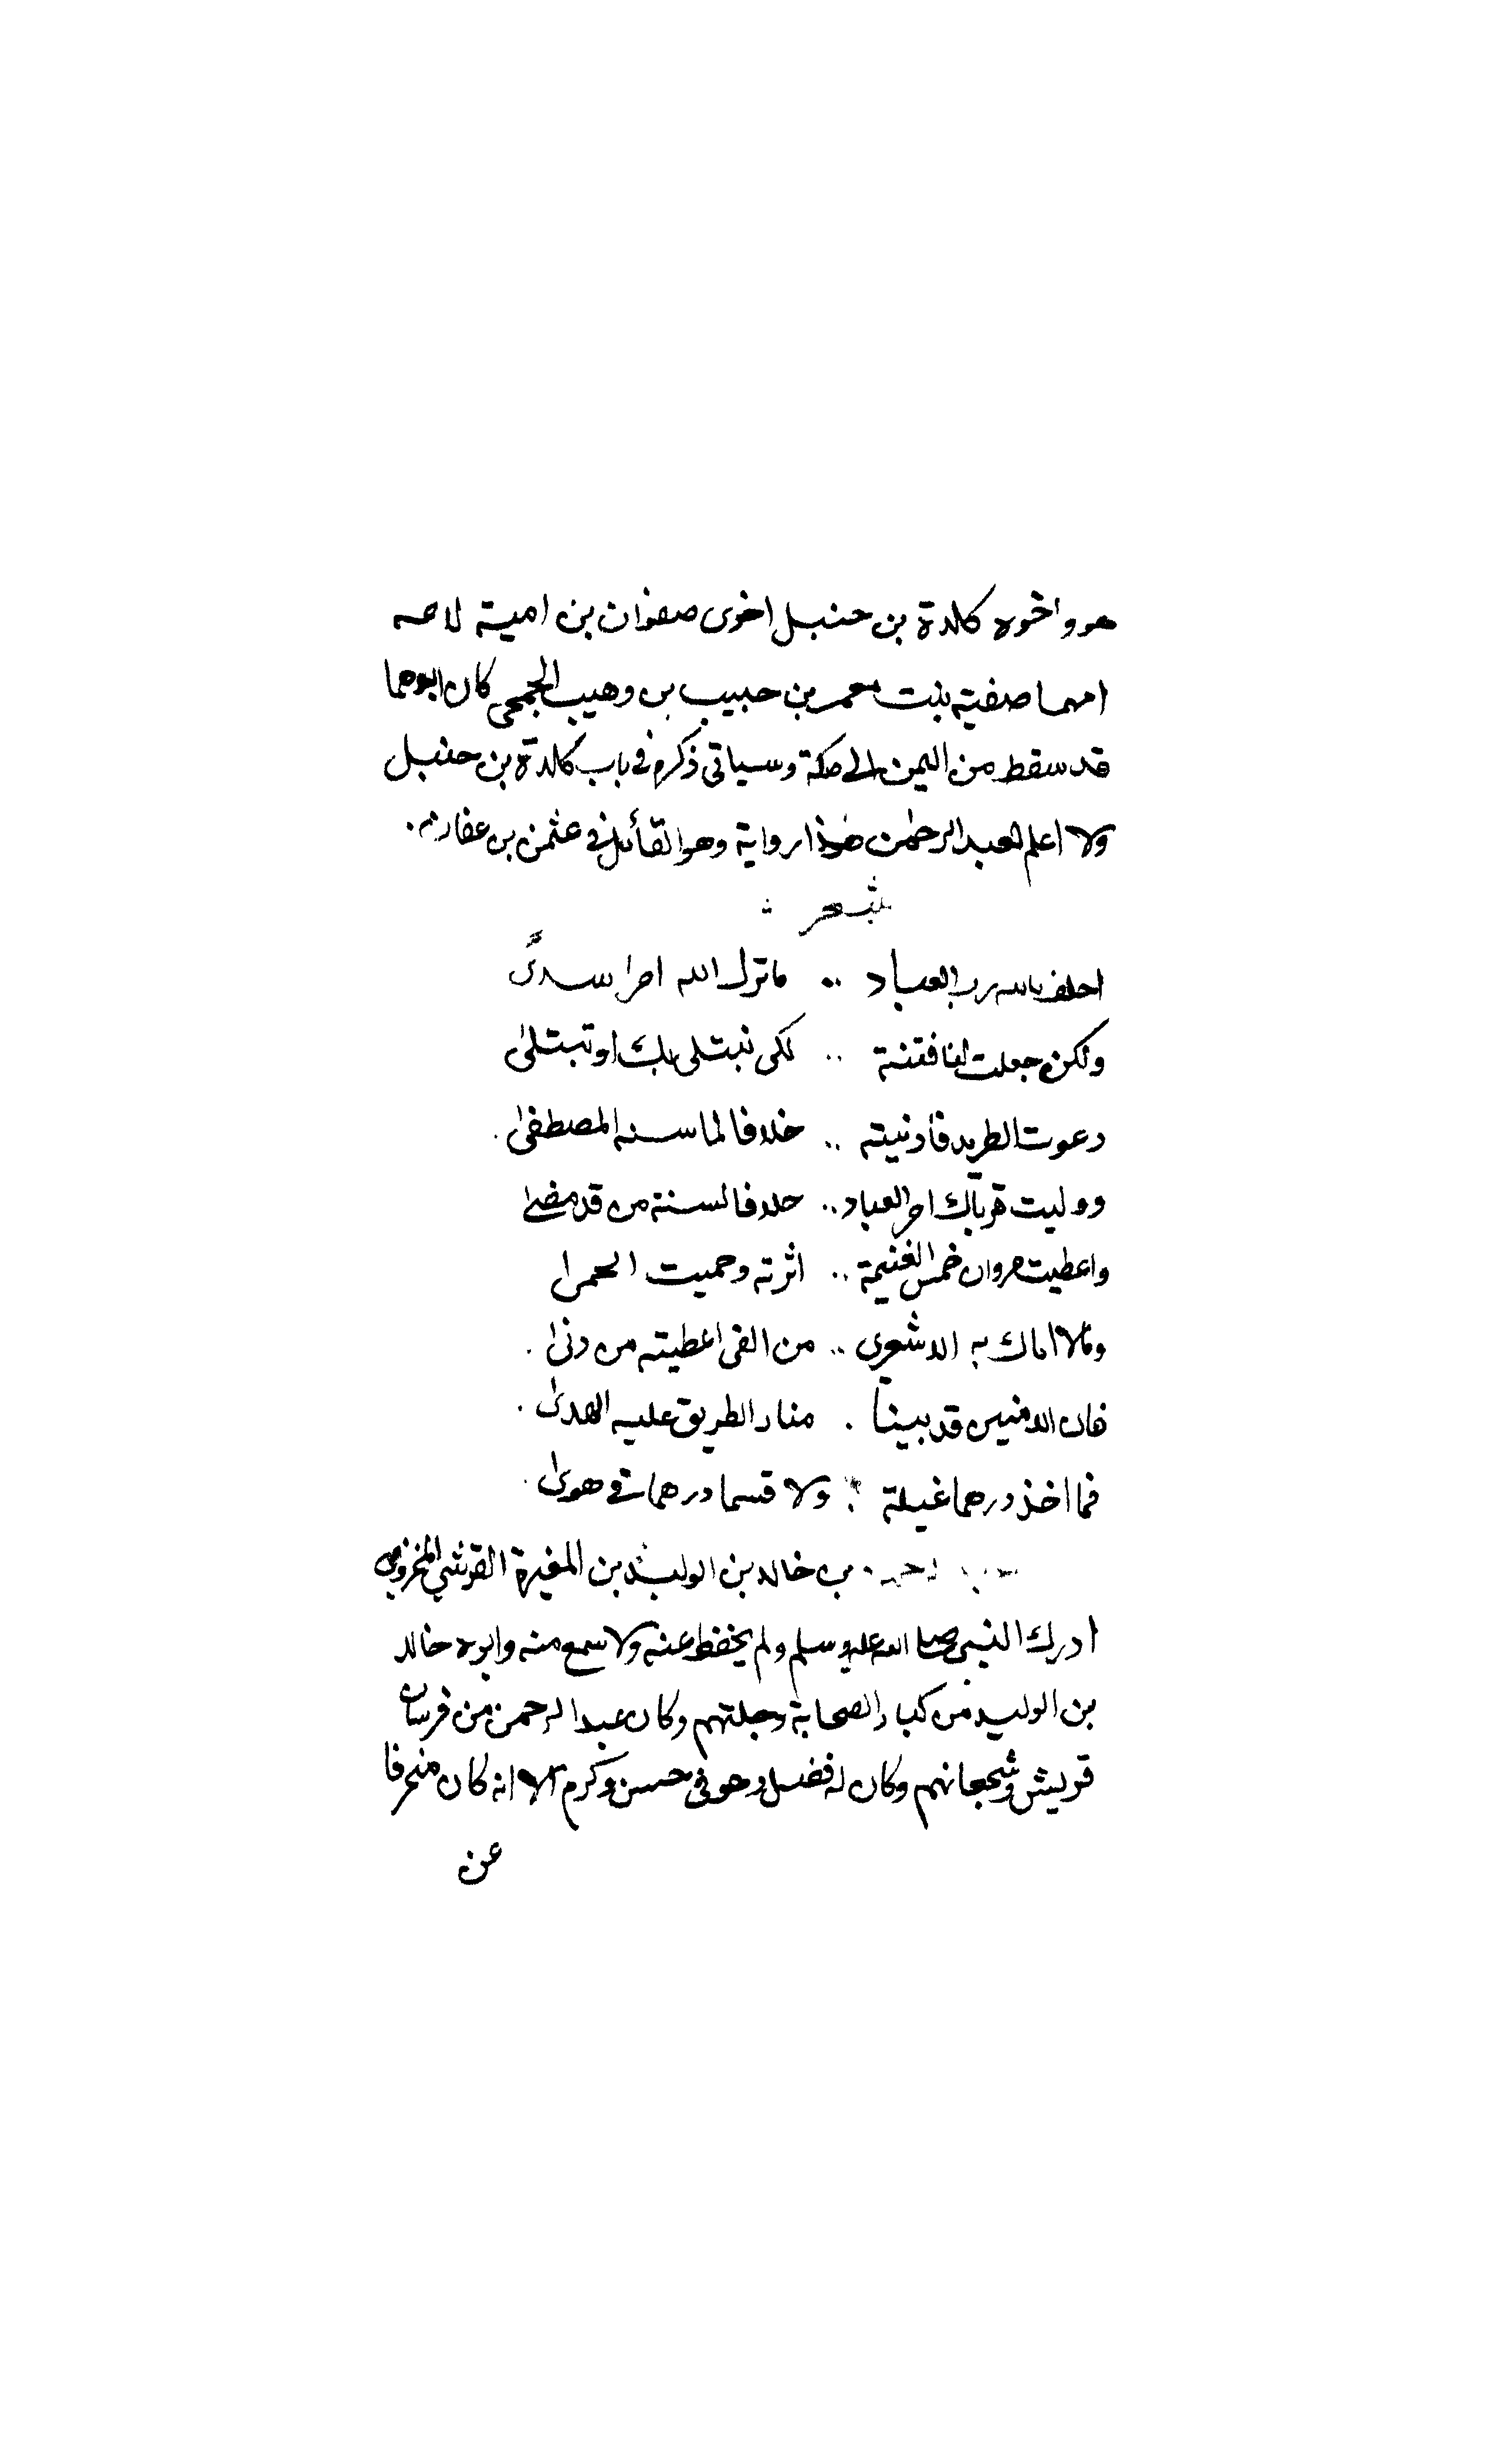 هو واخوه كلدة بن حنبل اخوى صفوان بن امية لامه
امهما صفية بنت معمر بن حبيب بن وهيب الجمحى كان ابوهما
قد سقط من اليمن الى مكة وسياتى ذكره فى باب كلدة بن حنبل
ولا اعلم لعبد الرحمن هذا رواية وهو القائل فى عثمن بن عفان
شعر
احلف بالله رب العباد ما ترك الله امرا سدىً
ولكن جعلت لنا فتنة لكى نبتلى بك او تبتلى
دعوت الطريد فأدنيته خلافا لما سنه المصطفى
ووليت قرباك امر العباد خلافا لسنة من قد مضى
واعطيت مروان خمس الغنيمة اثرته وحميت الحمى
ومالا اتاك به الاشعرى من الفى اعطيته من دنا
فان الامنين قد بينا منار الطريق عليه الهدى
فما اخذ درهما غيلة ولا قسما درهما فى هوى
بن خالد بن الوليد بن المغيرة القرشي المخزومى
ادرك النبى صلى الله عليه وسلم ولم يحفظ عنه ولا سمع منه وابوه خالد
بن الوليد من كبار الصحابة وجلتهم وكان عبد الرحمن من فرسان
قريش وشجعانهم وكان له فضل وهو فى حسن وكرم الا انه كان منحرفا
عن